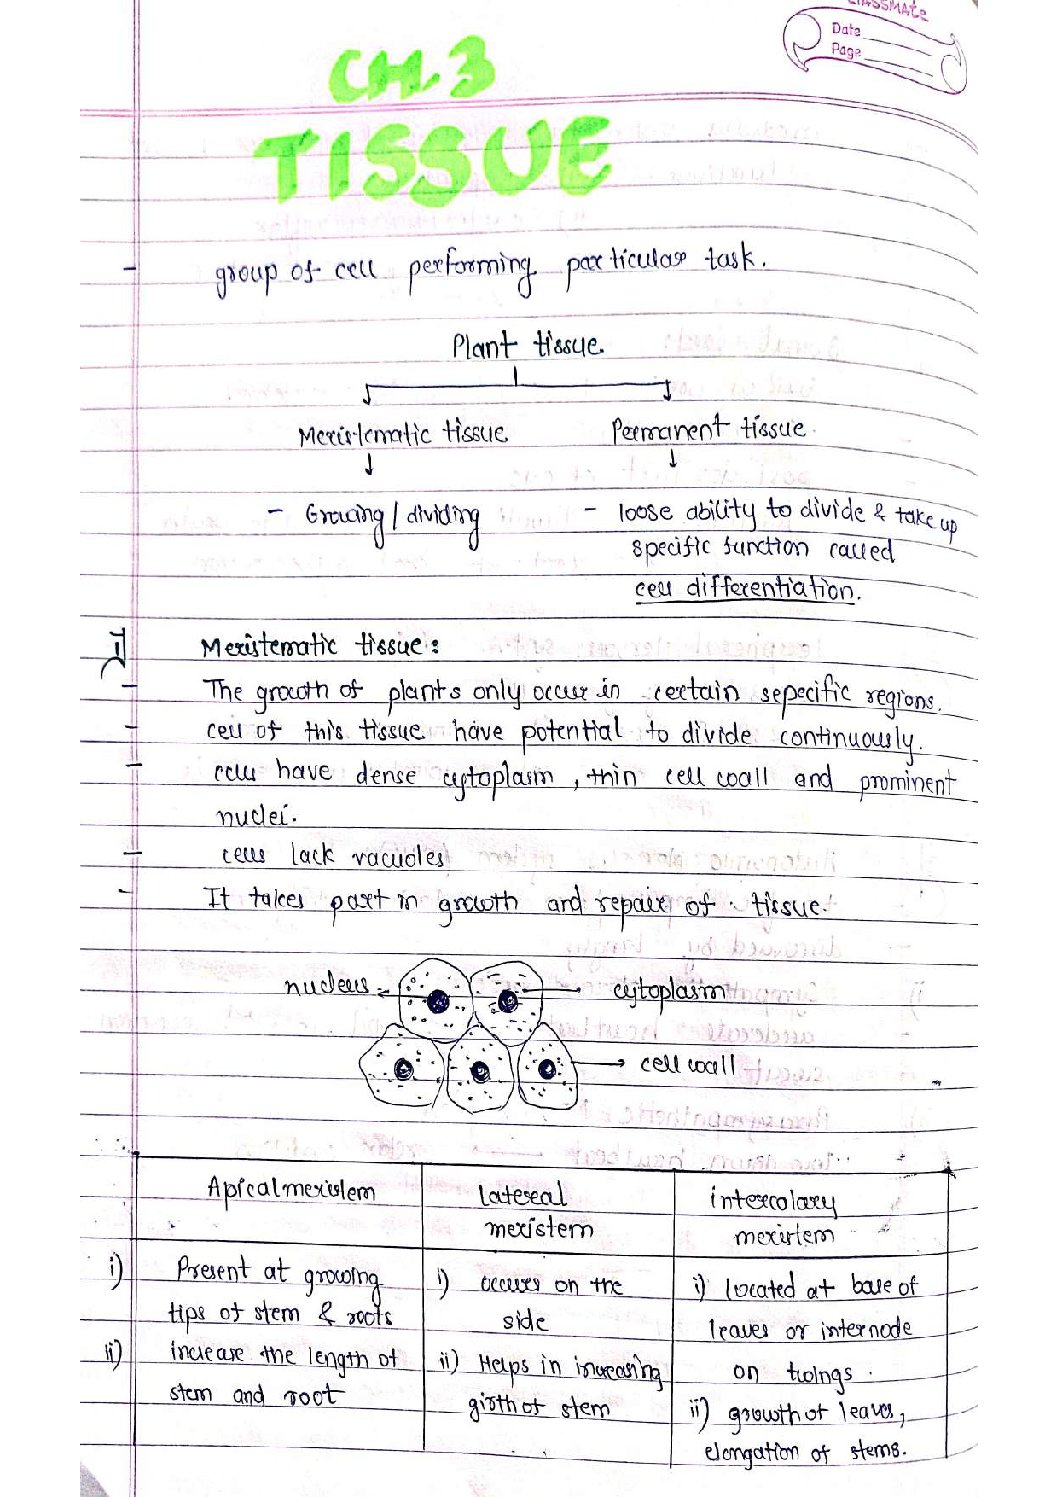 CLASSMATE
Date
Page
CH.3
TISSUE
- group of cell performing particular task.
Plant tissue
Meristematic tissue
Permanent tissue.
- Growing / dividing
- loose ability to divide & take up
specific function called
cell differentiation.
1) Meristematic tissue:
- The growth of plants only occur in certain sepecific regions.
- cell of this tissue have potential to divide continuously.
- cells have dense cytoplasm, thin cell wall and prominent
nuclei.
- cells lack vacuoles
- It takes part in growth and repair of tissue.
nucleus
cytoplasm
cell wall
Apical meristem
lateral
meristem
intercalary
meristem
i) Present at growing
tips of stem & roots
ii) increase the length of
stem and root
i) occurs on the
side
ii) Helps in increasing
girth of stem
i) located at base of
leaves or internode
on twings.
ii) growth of leaves,
elongation of stems.